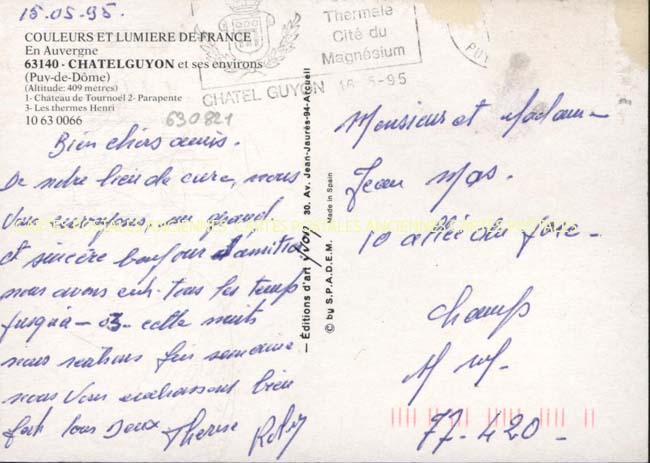 15.05.95.
COULEURS ET LUMIERE DE FRANCE
En Auvergne
63140 - CHATELGUYON et ses environs
(Puy-de-Dôme)
(Altitude: 409 mètres)
1- Château de Tournoël 2- Parapente
3- Les thermes Henri
10 63 0066
630821
Thermale
Cité du
Magnésium
CHATEL GUYON 16-5-95
PUY
Bien chers amis.
De notre lieu de cure, nous
Vous envoyons, un grand
et sincère bonjour d'amitié
nous avons tous les temps
jusqu'à - 03 - cette nuit
nous rentrons fin semaine
nous Vous embrassons bien
fort tous Deux Therese
— Éditions d'art YVON 30, Av. Jean-Jaurès-94-Arcueil
© by S.P.A.D.E.M. Made in Spain
Monsieur et Madame
Jean Mas.
10 allée du
Champs
77-420-
CARTES POSTALES ANCIENNES CARTES POSTALES